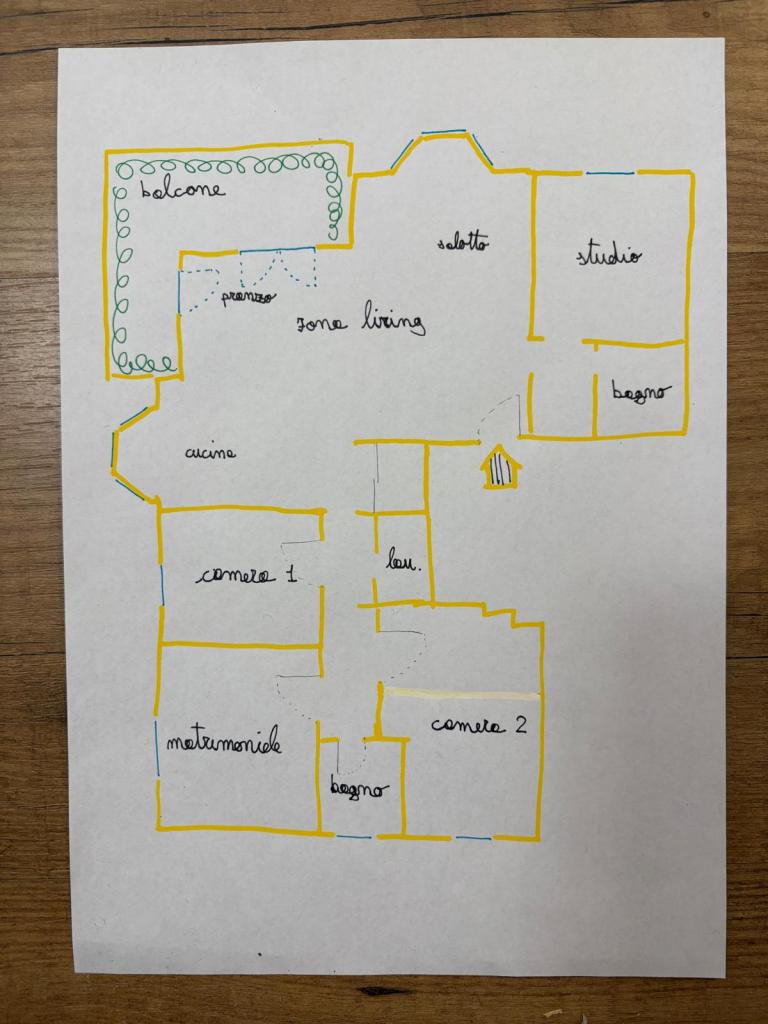 balcone
salotto
studio
pranzo
zona living
bagno
cucina
lav.
camera 1
camera 2
matrimoniale
bagno